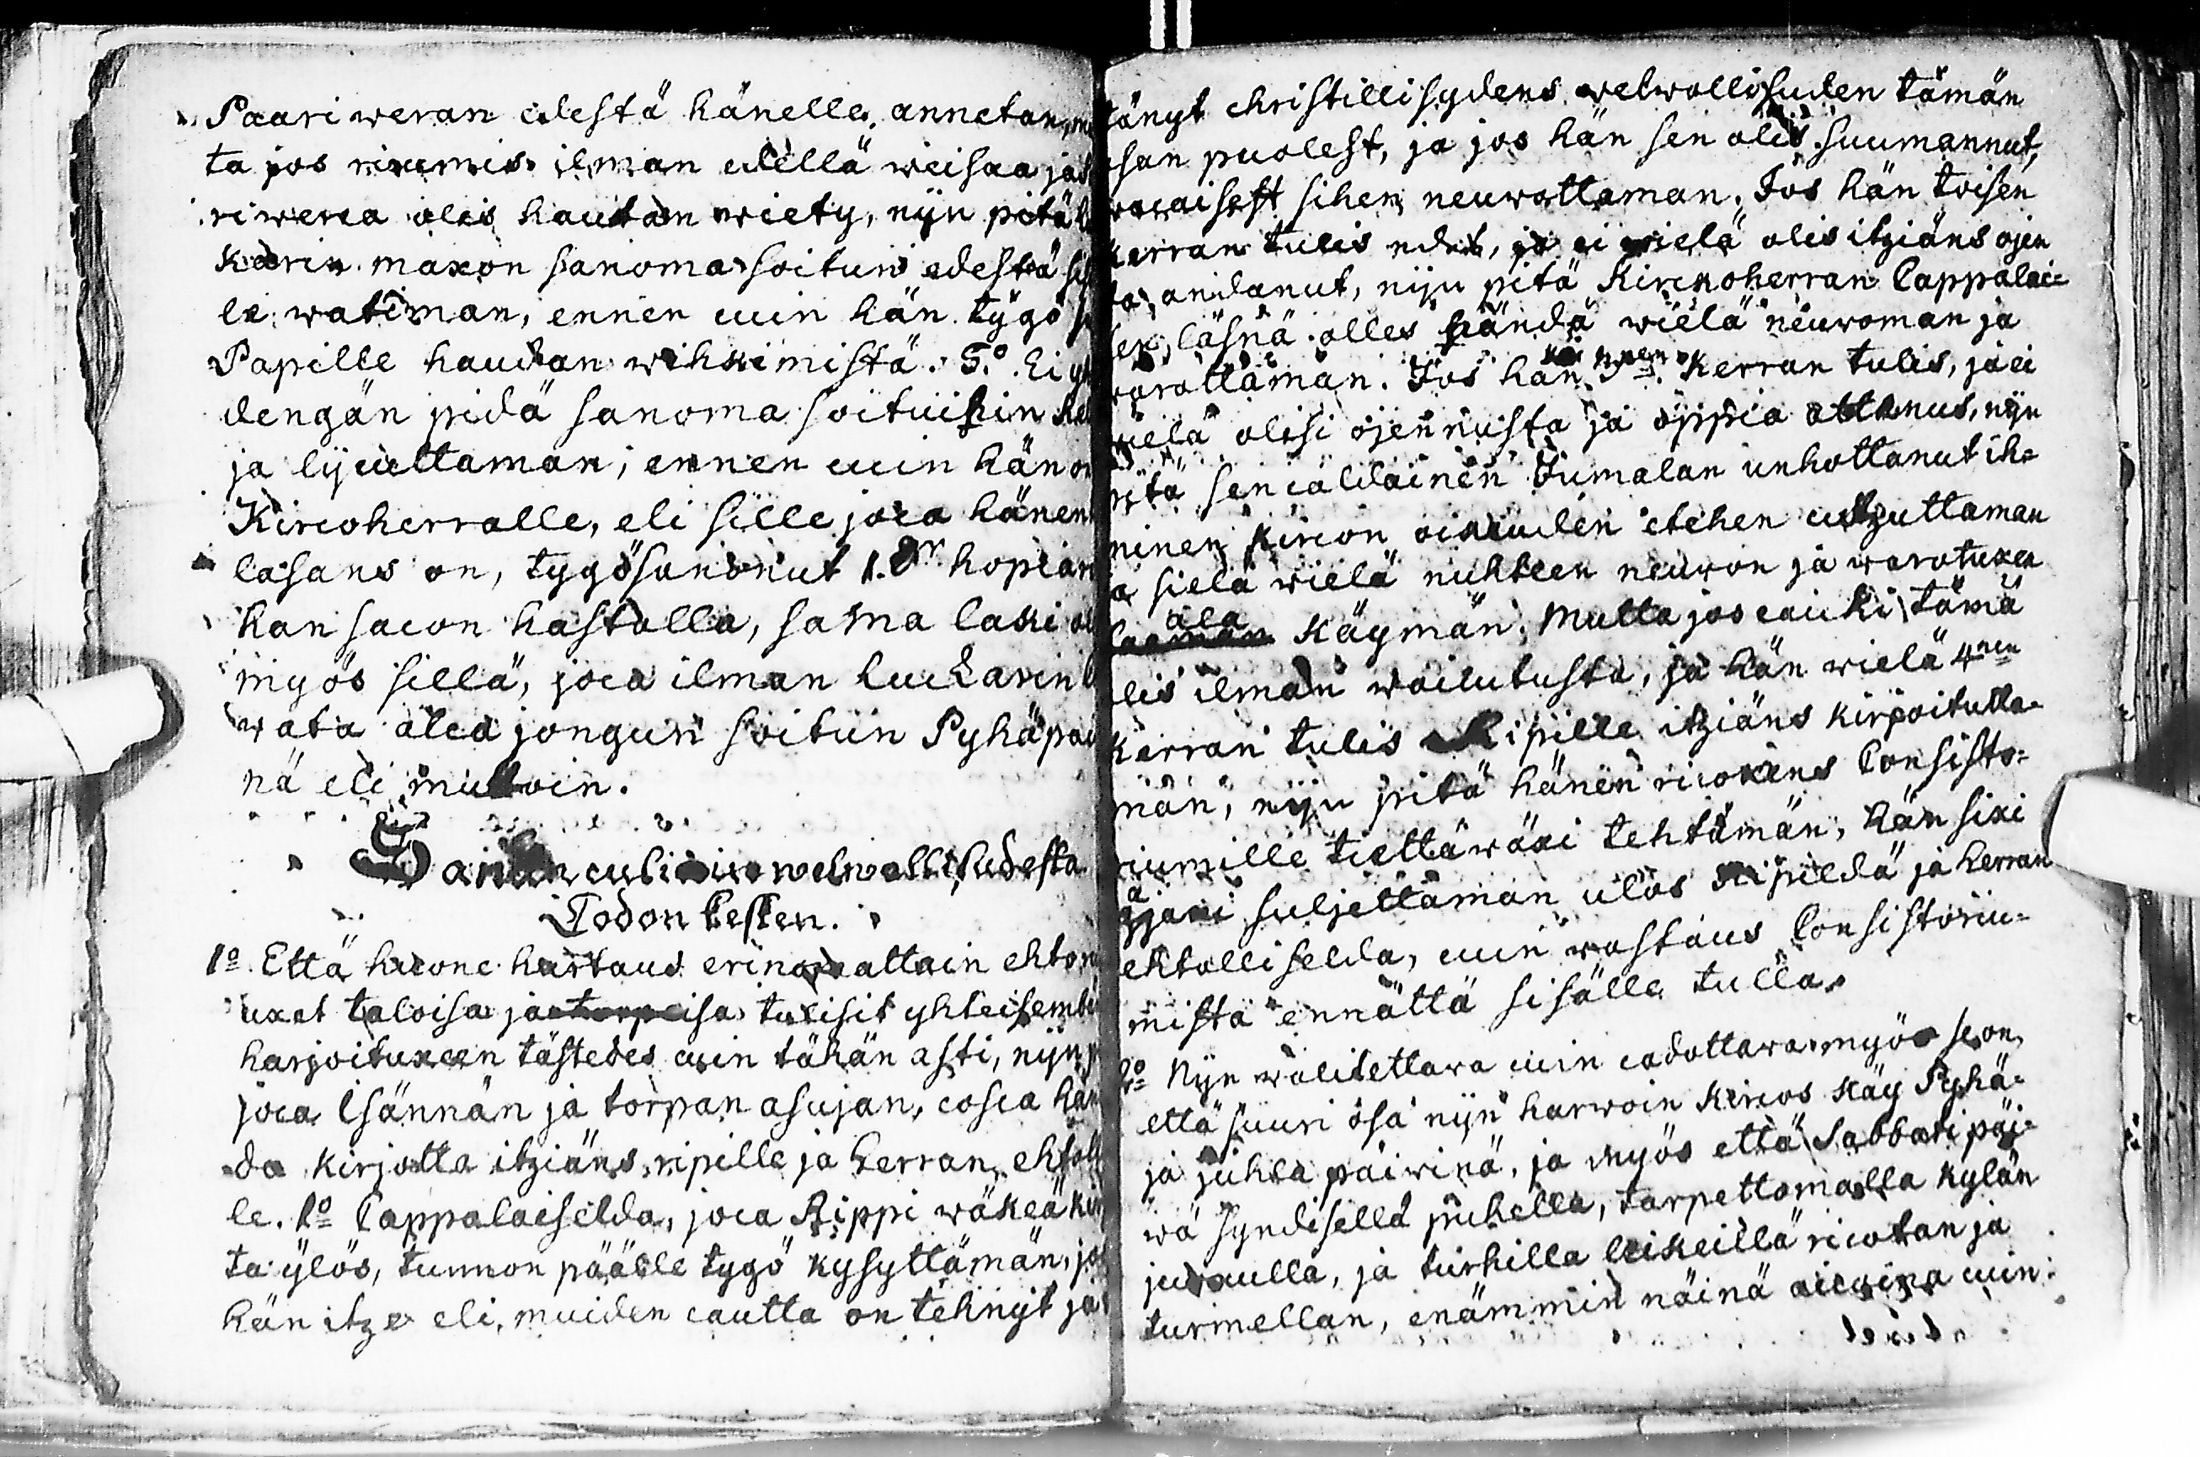 Paariweran edestä hänelle annetan, m
ta jos ruumis ilman edellä weisaa ja
riwerca olis hautan wiety, nijn pitä
karin maxon sanoma soitun edestä
le watiman, ennen cuin hän tygö
Papille haudan wihkimistä. 5.º Ei
dengän pidä sanoma soituihin
ja lyculttaman, ennen cuin hän on
Kircoherralle, eli sille joca hänen
lasans on, tygösanonut 1. hopian
han sacon hastolla, sama laki
myös sillä, joca ilman luckarin
wata alca jongun soitun Pyhäpäi
nä eli mutoin.
welwollisudesta
Codon kesken.
1º. Että huone hartaus erinomattain ehto
uxet taloisa ja torpeisa tulisit yhteisembi
harjoituxeen tästedes cuin tähän asti, nijn
joca Isännän ja torpan asujan, cosca hän
da kirjotta itziäns ripille ja Herran ehtol
le. 1º Cappalaiselda, joca Rippi wäkeä
ta ylös, tunnon päälle tygö kysyttämän, jos
hän itze eli muiden cautta on tehnyt ja
tänyt christillisydens welwollisuden tämän
san puolest, ja jos hän sen olis suumannut,
wacaisest sihen neuwottaman. Jos hän toisen
kerran tulis edes, ja ei wielä olis itziäns ojen
ta andanut, nijn pitä Kirckoherran Cappalai=
sen läsnä olles händä wielä neuwoman ja
warottaman. Jos hän 3nen kerran tulis, ja ei
wielä olisi ojennusta ja oppia ottanus, nijn
pitä sencaldainen Jumalan unhottanut ih=
minen kircon oikeuden etehen cutzuttaman
ja sielä wielä nuhteen neuwon ja warotuxen
ala käymän. Mutta jos caicki tämä
olis ilman waicutusta, ja hän wielä 4nen
kerran tulis Ripille itziäns kirjoitutta=
man, nijn pitä hänen ricoxens Consisto=
riumille tiettäwäxi tehtämän, hän sixi
ajaxi suljettaman ulos Ripildä ja herran
ehtolliselda, cuin wastaus Consistoriu=
mista ennättä sisälle tulla.
2º Nijn walitettawa cuin cadottawa myös se on,
että suuri osa nijn harwoin kircos käy Pyhä=
ja juhla päiwinä, ja myös että Sabbati päi=
wä syndisellä puhella, tarpettomalla kylän
juoxulla, ja turhilla leikeillä ricotan ja
turmellan, enämmin näinä aicoina cuin